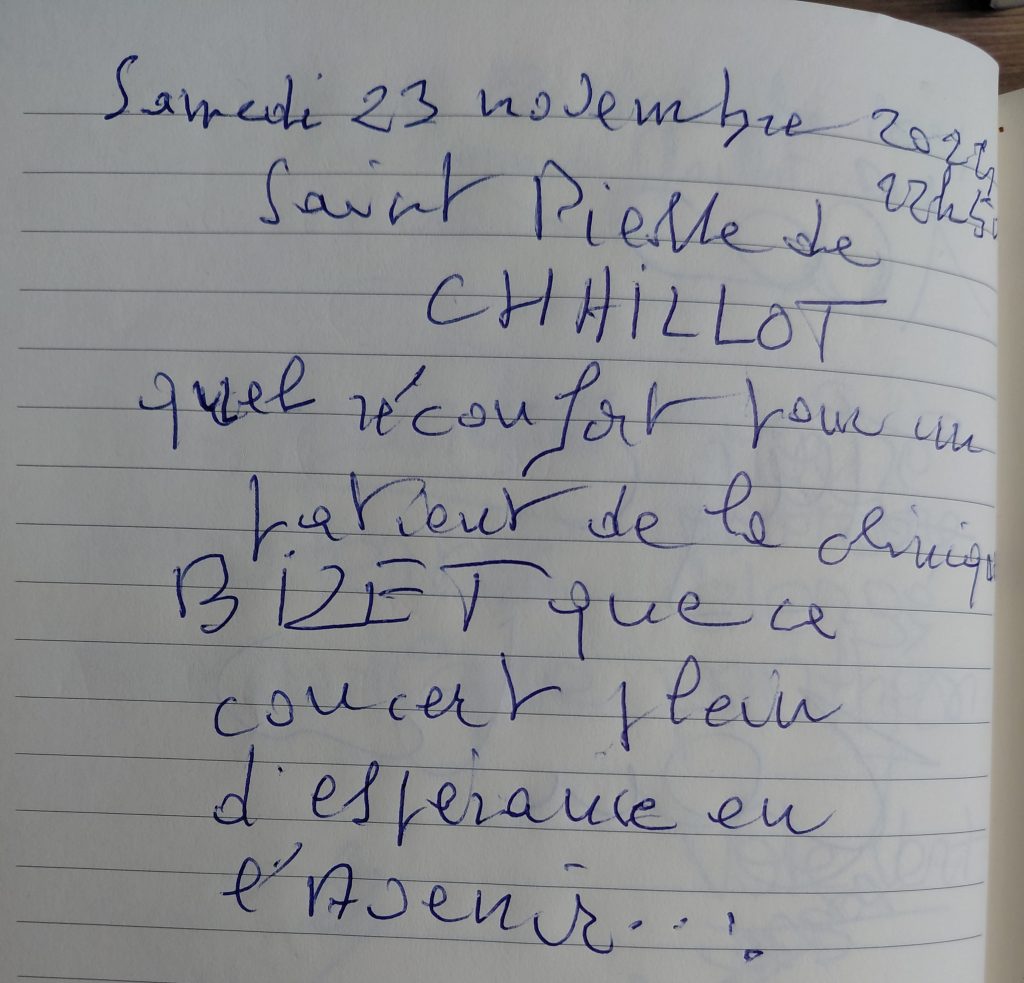 Samedi 23 novembre 2024
22h5
Saint Pierre de
CHHILLOT
quel réconfort pour un
patient de la cliniqu
BIZET que ce
concert plein
d'espérance en
l'Avenir...!